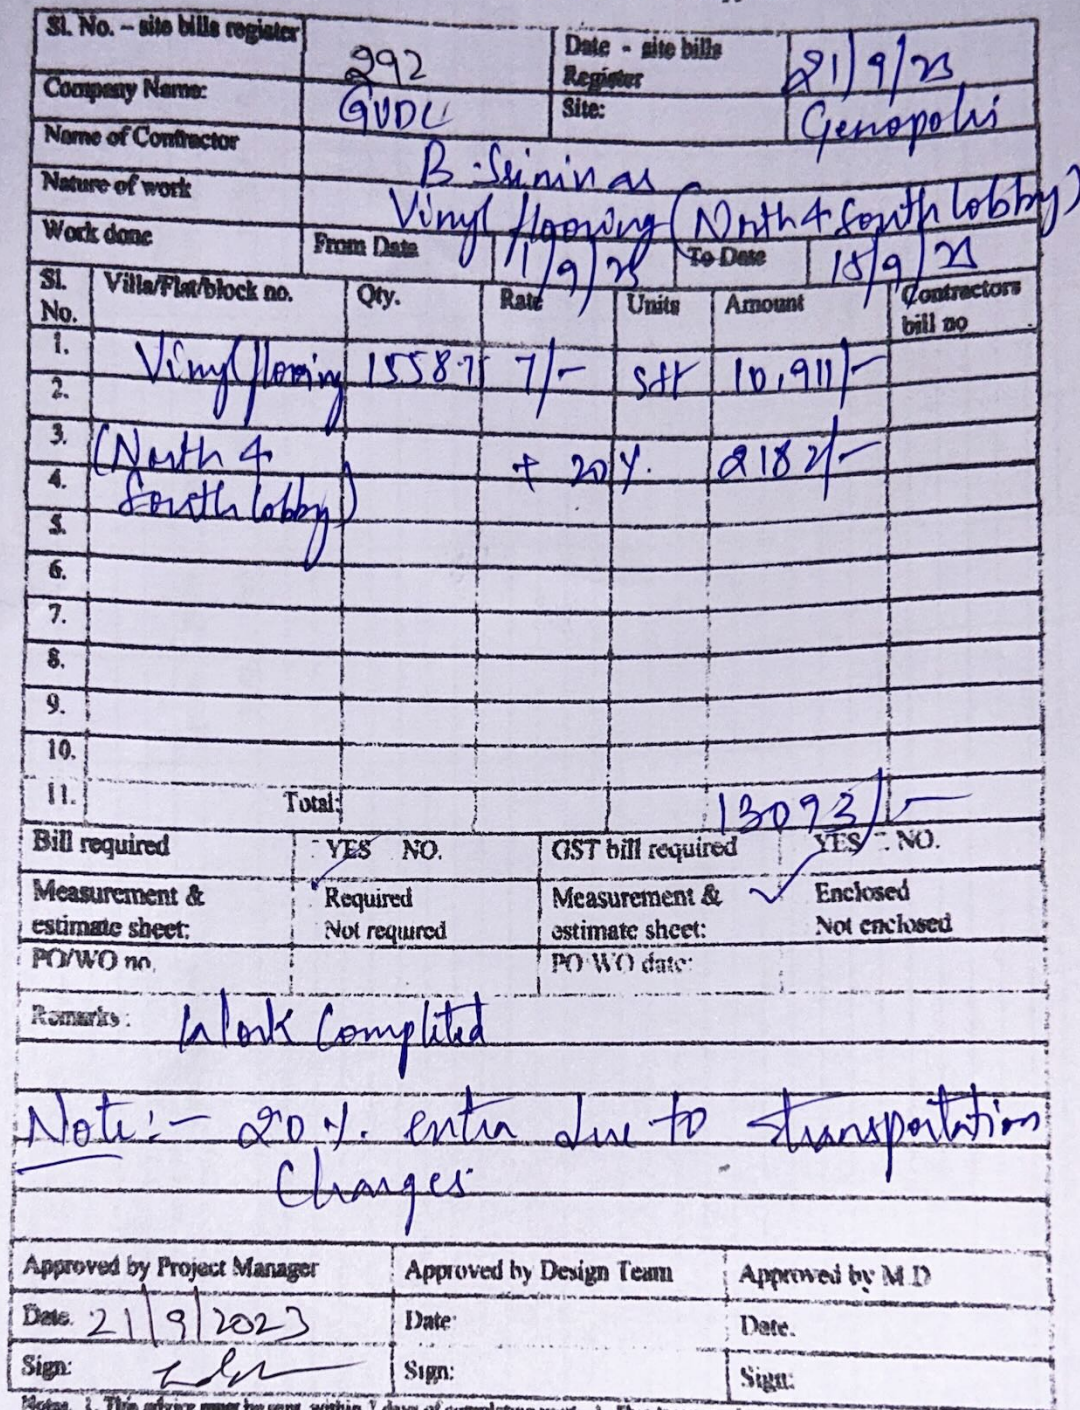 Sl. No. – site bills register 292 Date - site bills Register 21/9/23
Company Name: GVDC Site: Genopolis
Name of Contractor B. Srinivas
Nature of work Vinyl flooring (North & South lobby)
Work done From Date 1/9/23 To Date 15/9/23
Sl. No. Villa/Flat/block no. Qty. Rate Units Amount Contractors bill no
1. Vinyl flooring 1558.75 7/- sft 10,911/-
2.
3. (North &  + 20%. 2182/-
4. South lobby)
5.
6.
7.
8.
9.
10.
11. Total: 13093/-
Bill required YES NO. GST bill required YES - NO.
Measurement & estimate sheet: Required Not required Measurement & estimate sheet: Enclosed Not enclosed
PO/WO no. PO/WO date:
Remarks: Work Complited
Note:- 20%. extra due to transportation
Charges
Approved by Project Manager Approved by Design Team Approved by M.D
Date. 21/9/2023 Date: Date.
Sign: Sign: Sign: